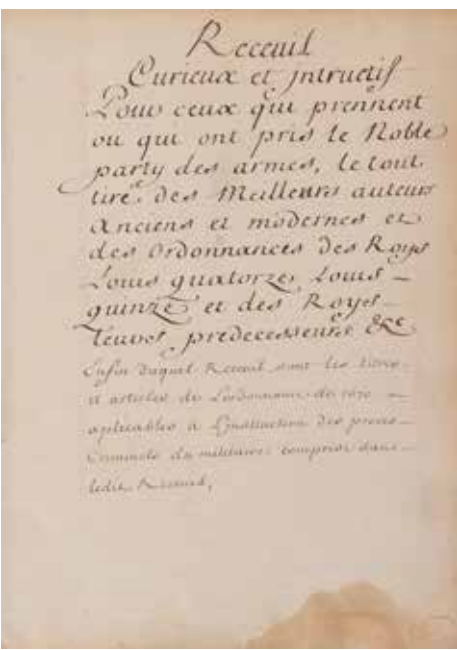 Receuil
Curieux et jntructif
Pour ceux qui prennent
ou qui ont pris le Noble
party des armes, le tout
tiré des Meilleurs auteurs
anciens et modernes et
des Ordonnances des Roys
Louis quatorze, Louis
quinze et des Roys
leurs predecesseurs &c
Enfin duquel Receuil sont les titres
et articles de Lordonnance de 1670
aplicables a Linstruction des proces
Criminels du militaire compris dans
ledit Receuil,